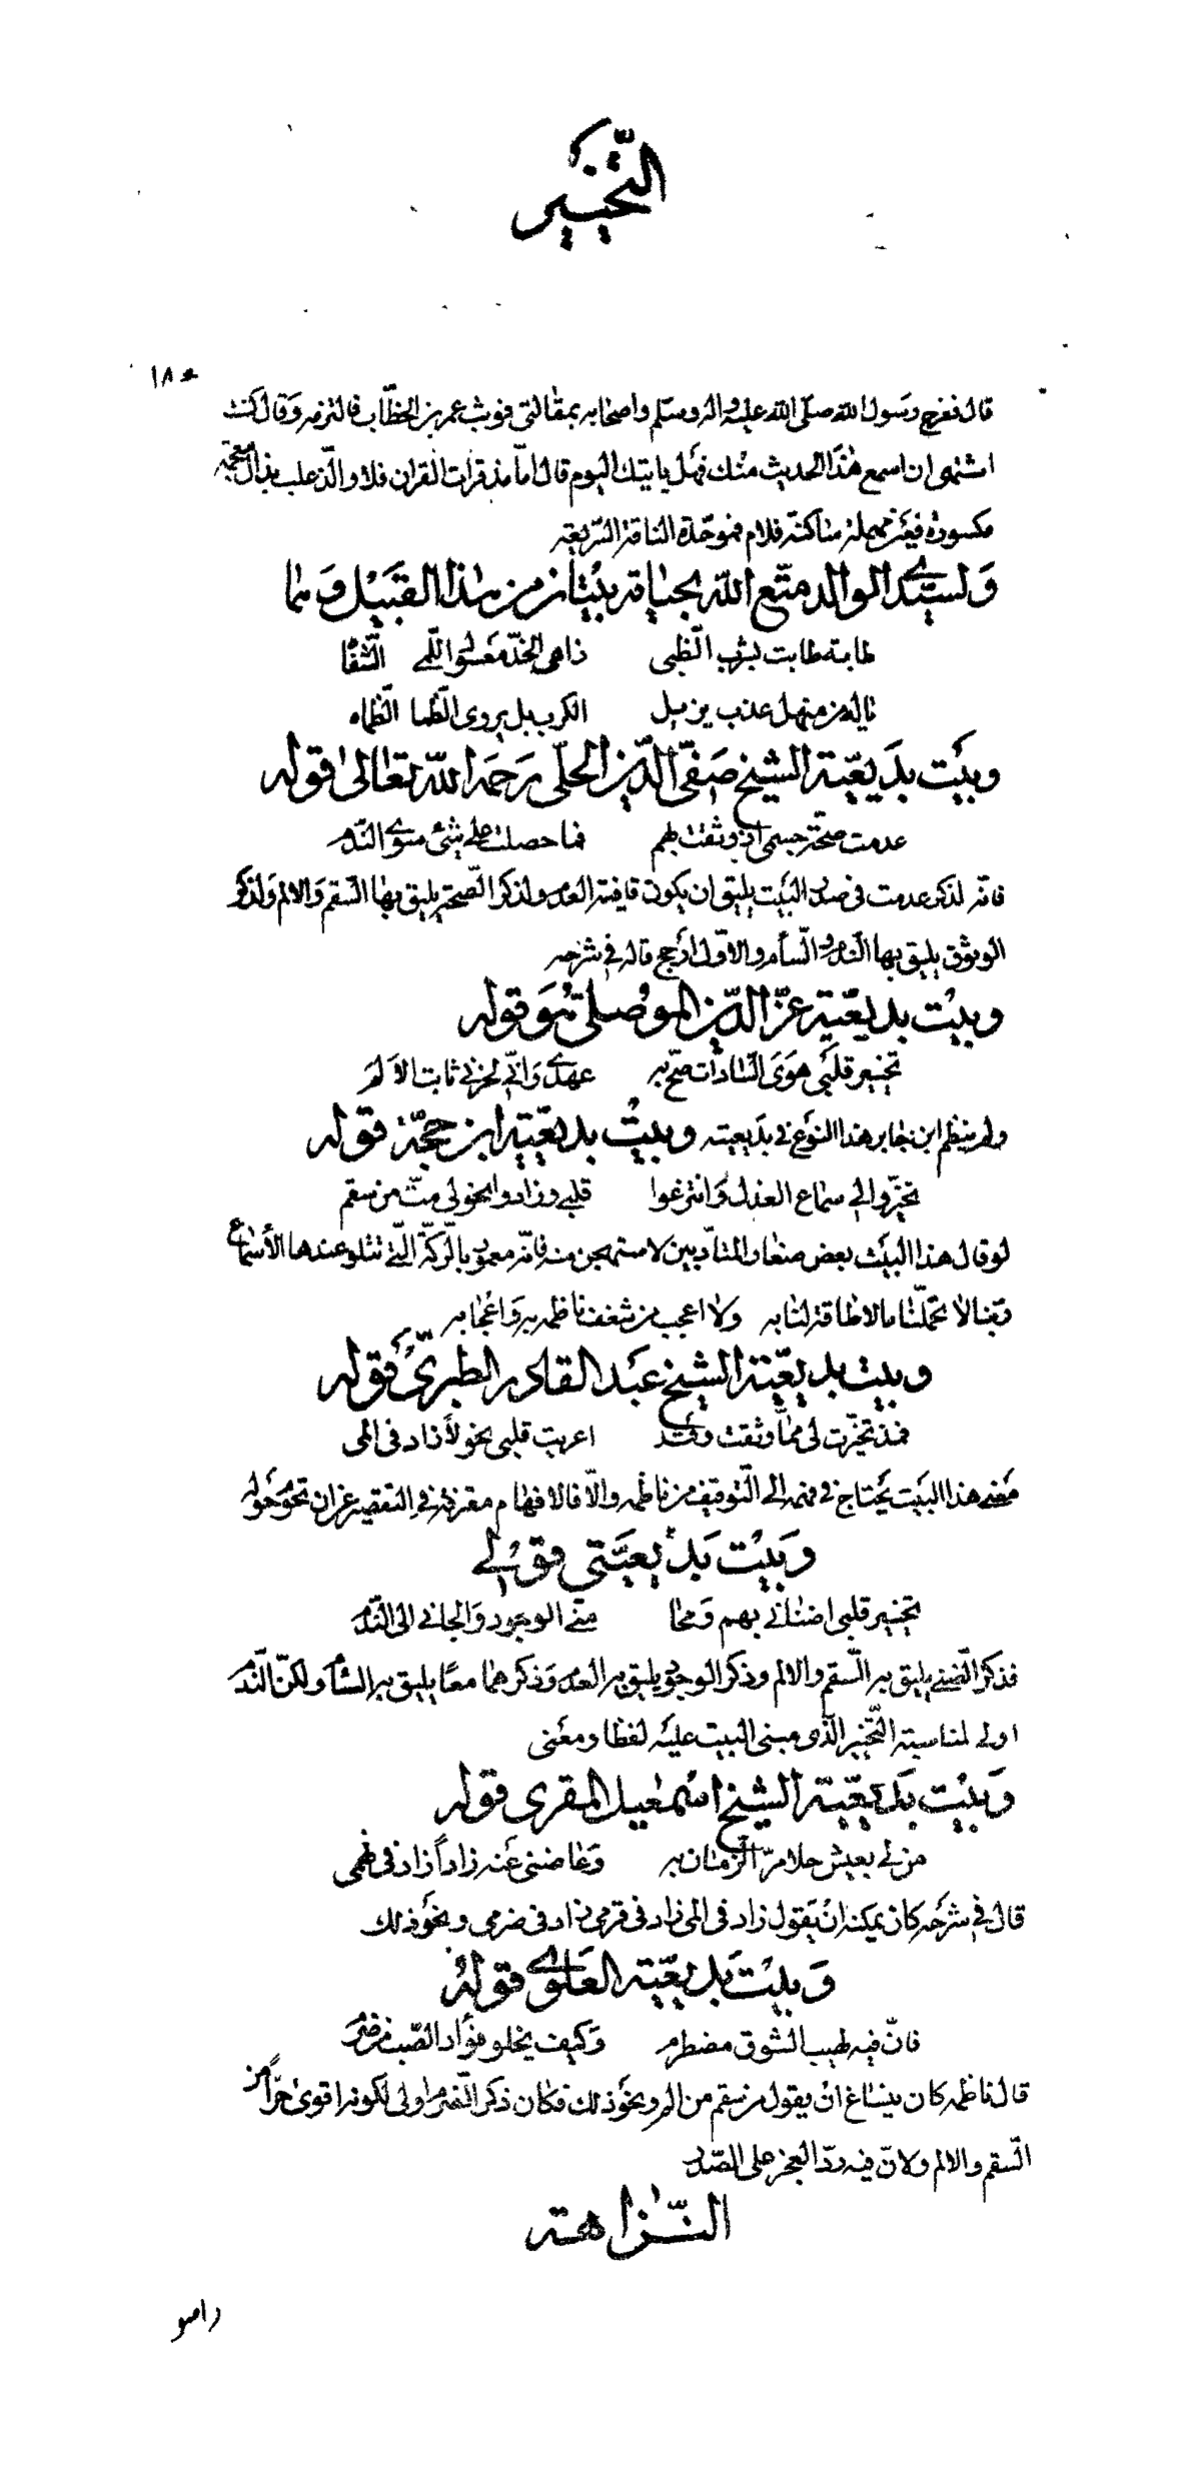 التخيير
١٨٤
قال ففرح رسول الله صلى الله عليه واله وسلم واصحابه بمقالتى فوثب عمر بن الخطاب فالتزمه وقال كنت
اشتهى ان اسمع هذا الحديث منك فهل يأتيك اليوم قال اما مذ قرات القران فلا والذعلب بذال معجمة
مكسورة فعين مهملة ساكنة فلام فموحدة الناقة السريعة
ولسيدى الوالد متع الله بحياته بيتان من هذا القبيل وهما
طابة طابت بشرب الظبى ذاهى الخد معسول اللمى الشفاه
ياله من منهل عذب يزيل الكرب بل يروى الظما الظماه
وبيت بديعية الشيخ صفى الدين الحلى رحمه الله تعالى قوله
عدمت صحة جسمى اذ وثقت بهم فما حصلت على شئ سوى الندم
فانه لذكر عدمت فى صدر البيت يليق ان يكون قافيته العدم ولذكر الصحة يليق بها السقم والالم ولذكر
الوثوق يليق بها الندم والسأم والاول ارجح قاله فى شرحه
وبيت بديعية عز الدين الموصلى هو قوله
تخيير قلبى هوى السادات صح به عهدى وانى لحزنى ثابت الالم
ولم ينظم ابن جابر هذا النوع فى بديعيته وبيت بديعية ابن حجة قوله
تخيروا لى سماع العذل وانتزعوا قلبى وزادوا نحولى مت من سقم
لو قال هذا البيت بعض صغار المتادبين لاستهجن منه فانه معمور بالركة التى تتلو عندها الأسماع
ربنا لا تحملنا ما لا طاقة لنا به ولا اعجب من شغف ناظمه به واعجابه
وبيت بديعية الشيخ عبد القادر الطبرى قوله
فمذ تخيرت لى مما وثقت وقد اعربت قلبى نحولا زاد فى المى
معنى هذا البيت يحتاج فى فهمه الى التوقيف من ناظمه والا فالافهام معترفة فى التقصير عن ان تحوم حوله
وبيت بديعيتى قولى
تخيير قلبى اضنانى بهم ومحا منى الوجود والجانى الى الندم
فذكر الضنى يليق به السقم والالم وذكر الوجود يليق به العدم وذكرهما معا يليق به السأم ولكن الندم
اولى لمناسبة التخيير الذى مبنى البيت عليه لفظا ومعنى
وبيت بديعية الشيخ اسمعيل المقرى قوله
من لى بعيش حلا مر الزمان به وعاضنى عنه زادا زاد فى
قال فى شرحه كان يمكنه ان يقول زاد فى المى زاد فى قرمى زاد فى ضرمى ونحو ذلك
وبيت بديعية العلوى قوله
فان فيه لهيب الشوق مضطرم وكيف يخلو فؤاد الصب من ضرم
قال ناظمه كان يساغ ان يقول من سقم من الم ونحو ذلك فكان ذكر الضرم اولى لكونه اقوى حرا من
السقم والالم ولان فيه رد العجز على الصدر
النزاهة